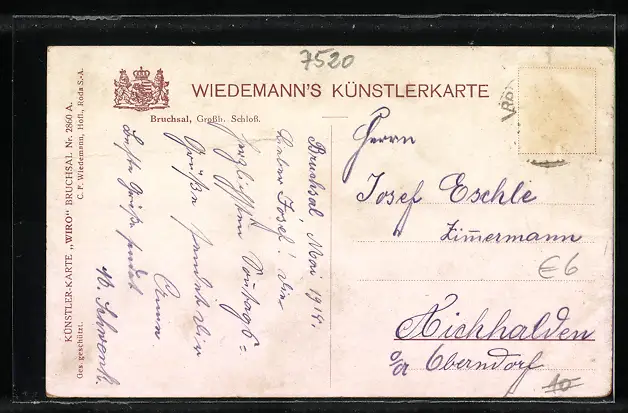 7520
WIEDEMANN'S KÜNSTLERKARTE
Bruchsal, Großh. Schloß.
KÜNSTLER-KARTE „WIRO" BRUCHSAL Nr. 2860 A.
Ges. geschützt. C. F. Wiedemann, Hofl., Roda S.-A.
Bruchsal Mai 1914.
Lieber Josef! Die
herzlichsten Sontags=
Grüße sendet Dir
Anna.
Beste Grüße sendet
Herrn
Josef Eschle
Zimmermann
€6
Aichhalden
o/a Oberndorf
10